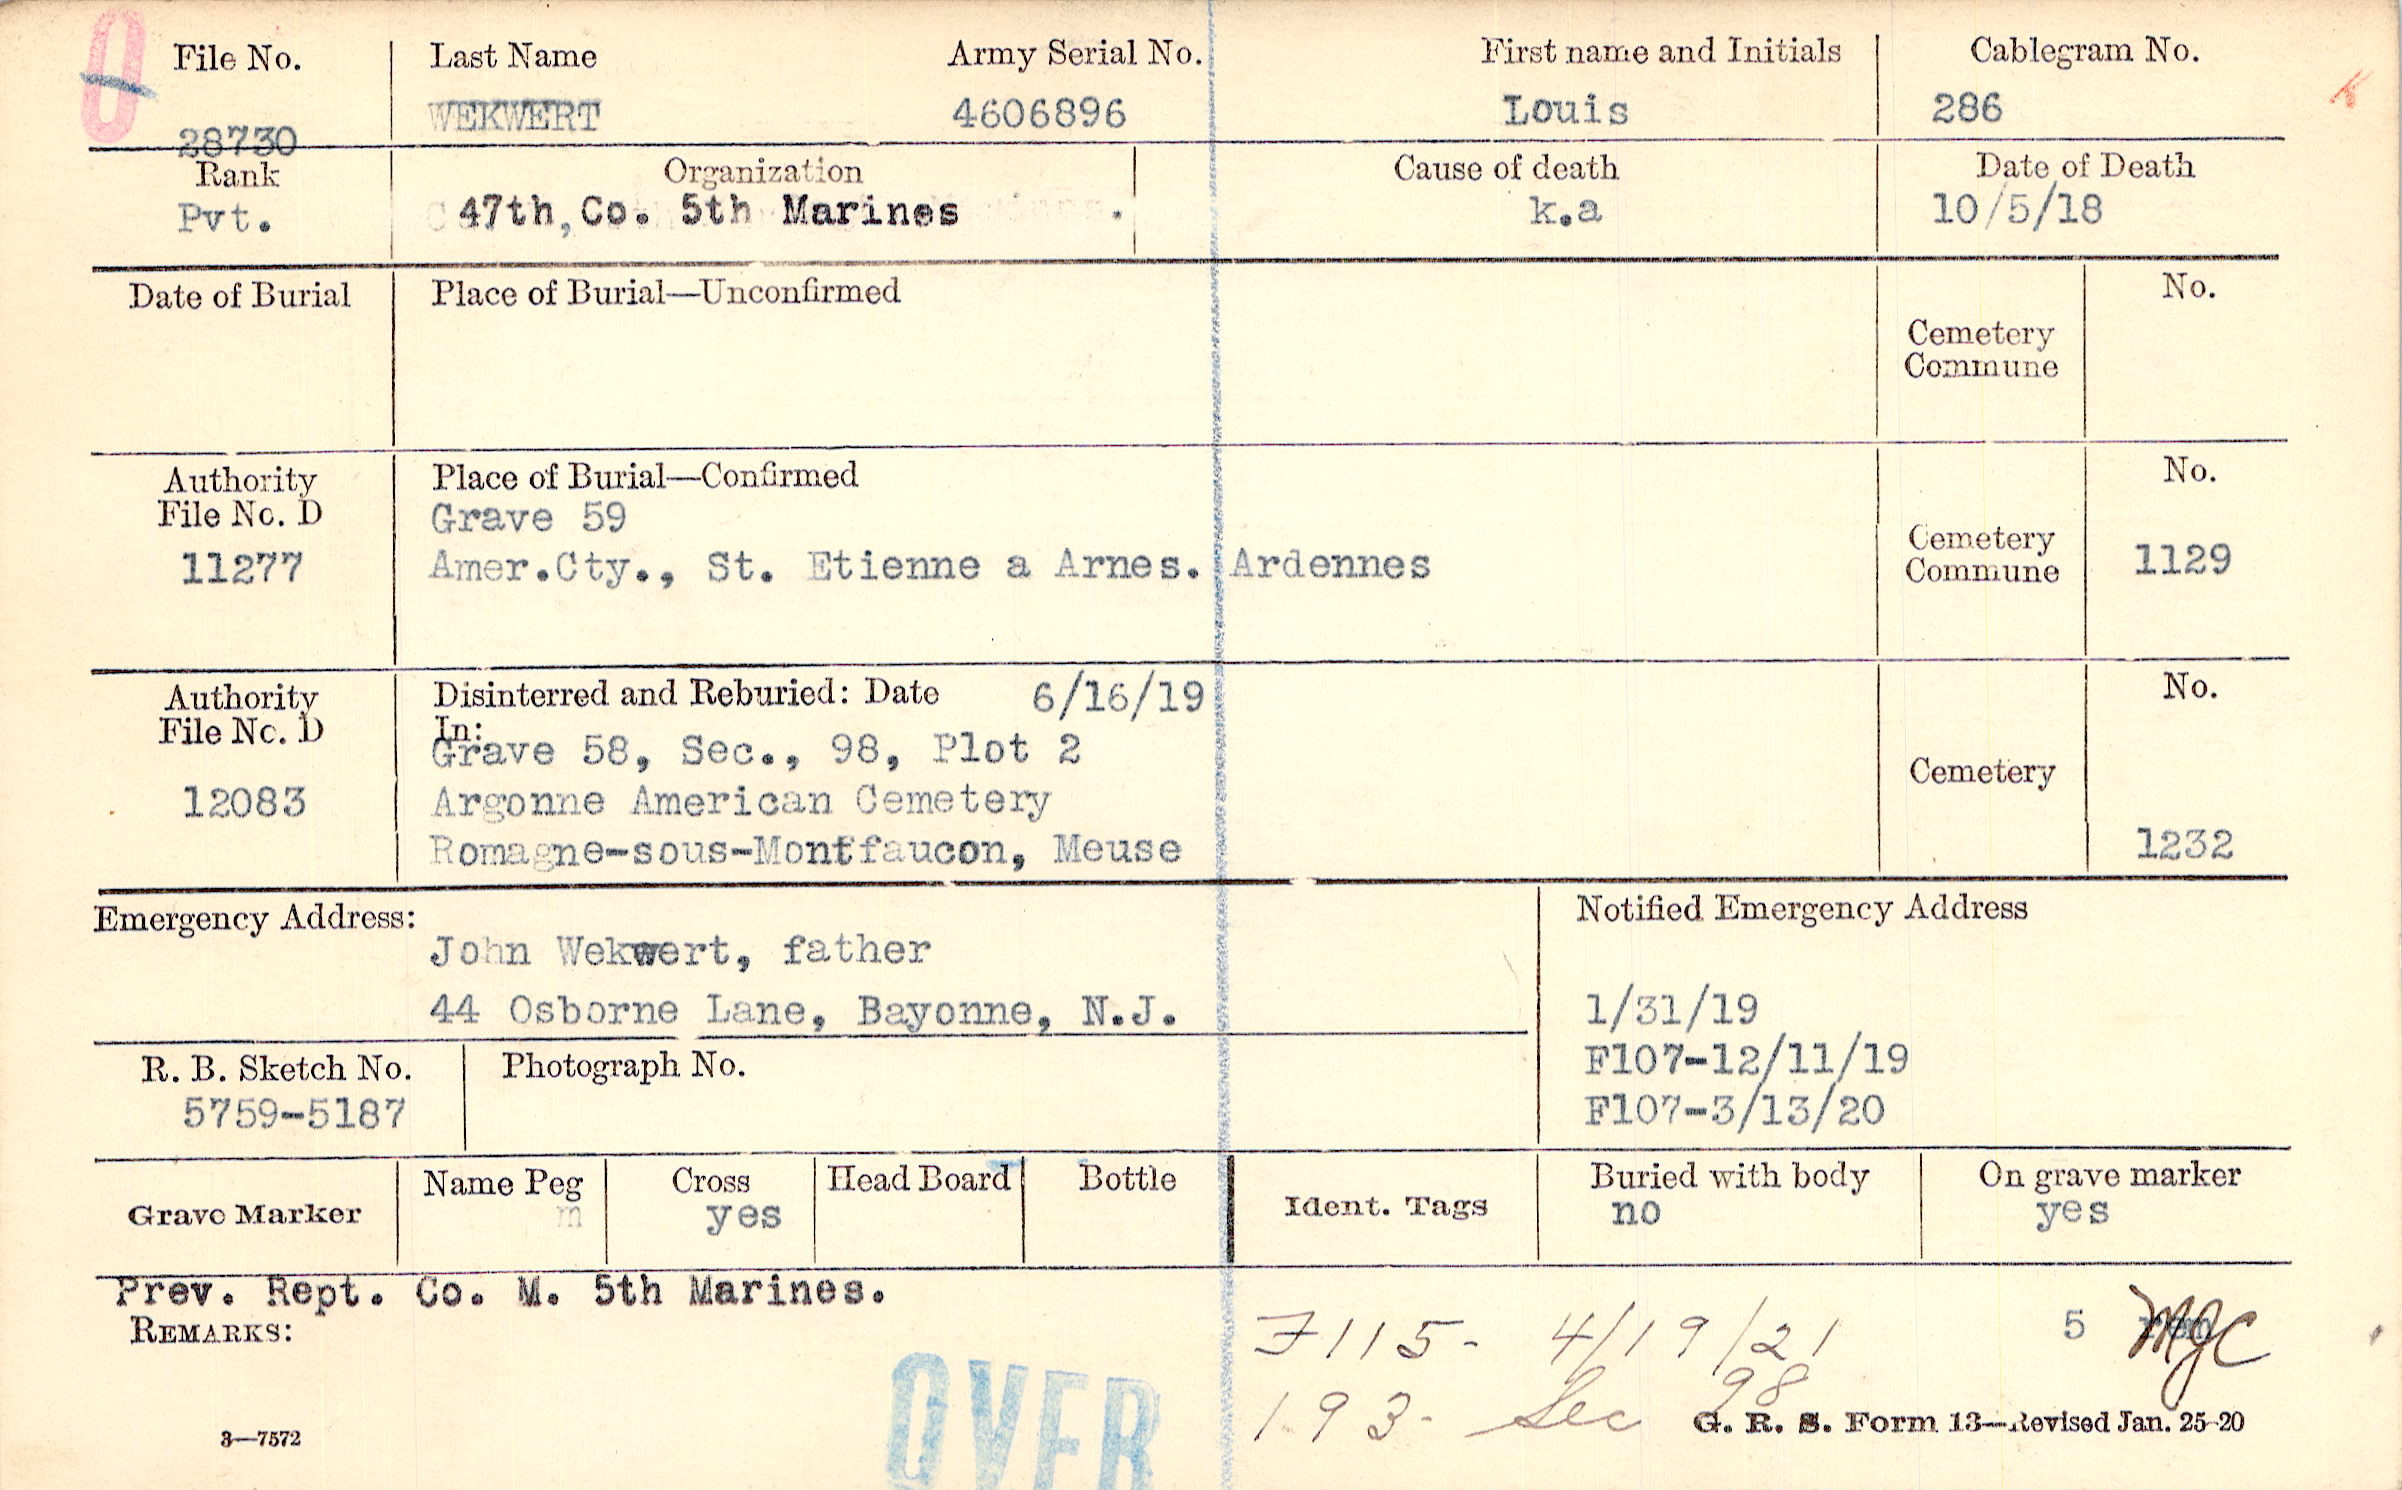 0
File No.
28730
Last Name
WEKWERT
Army Serial No.
4606896
First name and Initials
Louis
Cablegram No.
286
Rank
Pvt.
Organization
47th, Co. 5th Marines
Cause of death
k.a
Date of Death
10/5/18
Date of Burial
Place of Burial—Unconfirmed
Cemetery
Commune
No.
Authority
File No. D
11277
Place of Burial—Confirmed
Grave 59
Amer.Cty., St. Etienne a Arnes. Ardennes
Cemetery
Commune
No.
1129
Authority
File No. D
12083
Disinterred and Reburied: Date 6/16/19
In:
Grave 58, Sec., 98, Plot 2
Argonne American Cemetery
Romagne-sous-Montfaucon, Meuse
Cemetery
No.
1232
Emergency Address:
John Wekwert, father
44 Osborne Lane, Bayonne, N.J.
Notified Emergency Address
1/31/19
F107-12/11/19
F107-3/13/20
R. B. Sketch No.
5759-5187
Photograph No.
Grave Marker
Name Peg
m
Cross
yes
Head Board
Bottle
Ident. Tags
Buried with body
no
On grave marker
yes
Prev. Rept. Co. M. 5th Marines.
REMARKS:
F115- 4/19/21
193- Sec 98
5
MJC
OVER
3—7572
G. R. S. Form 13—Revised Jan. 25-20